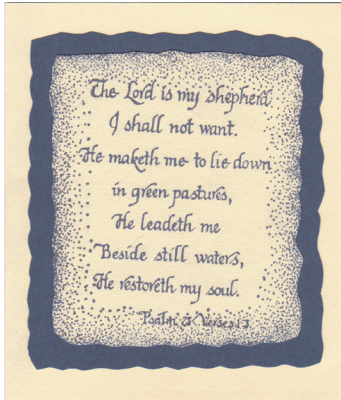 The Lord is my shepherd
I shall not want.
He maketh me to lie down
in green pastures,
He leadeth me
Beside still waters,
He restoreth my soul.
Psalm 23 Verses 1-3